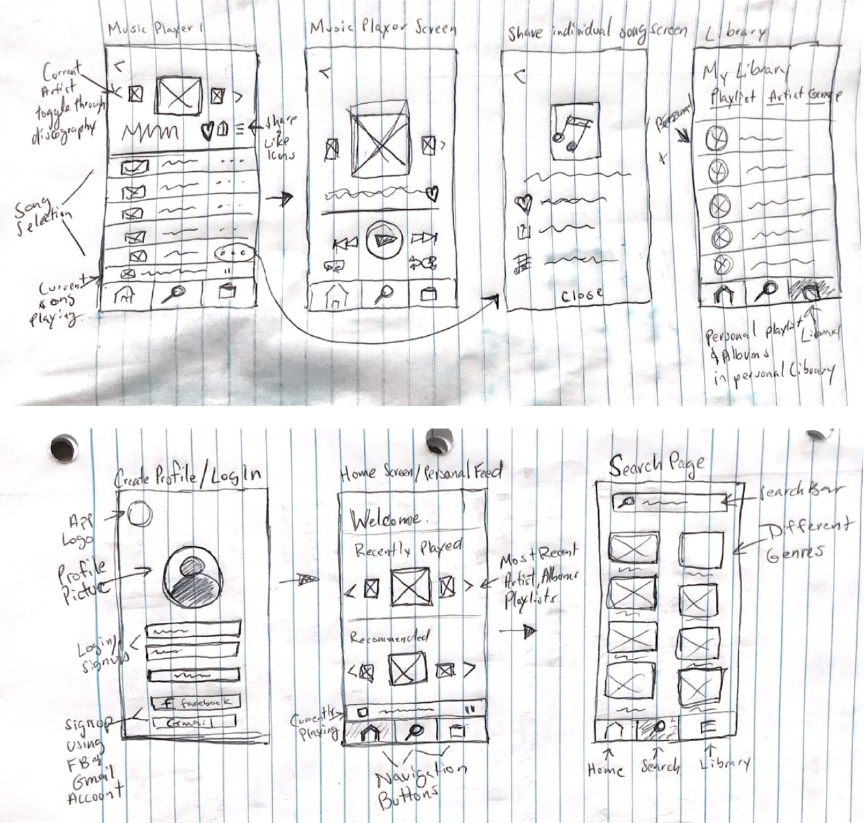 Music Player 1
Current
Artist
toggle through
discography
Share
&
Like
Icons
Song
Selection
Current
song
playing
Music Player Screen
Share individual song screen
Close
Library
My Library
Playlist Artist
Personal playlist
& Albums
in personal Library
Create Profile/Log In
App
Logo
Profile
Picture
Login/
signup
facebook
Gmail
signup
using
FB or
Gmail
Account
Home Screen/Personal Feed
Welcome.
Recently Played
Most Recent
Artist, Albums
Playlists
Recommended
Currently
Playing
Navigation
Buttons
Search Page
Search Bar
Different
Genres
Home
Search
Library